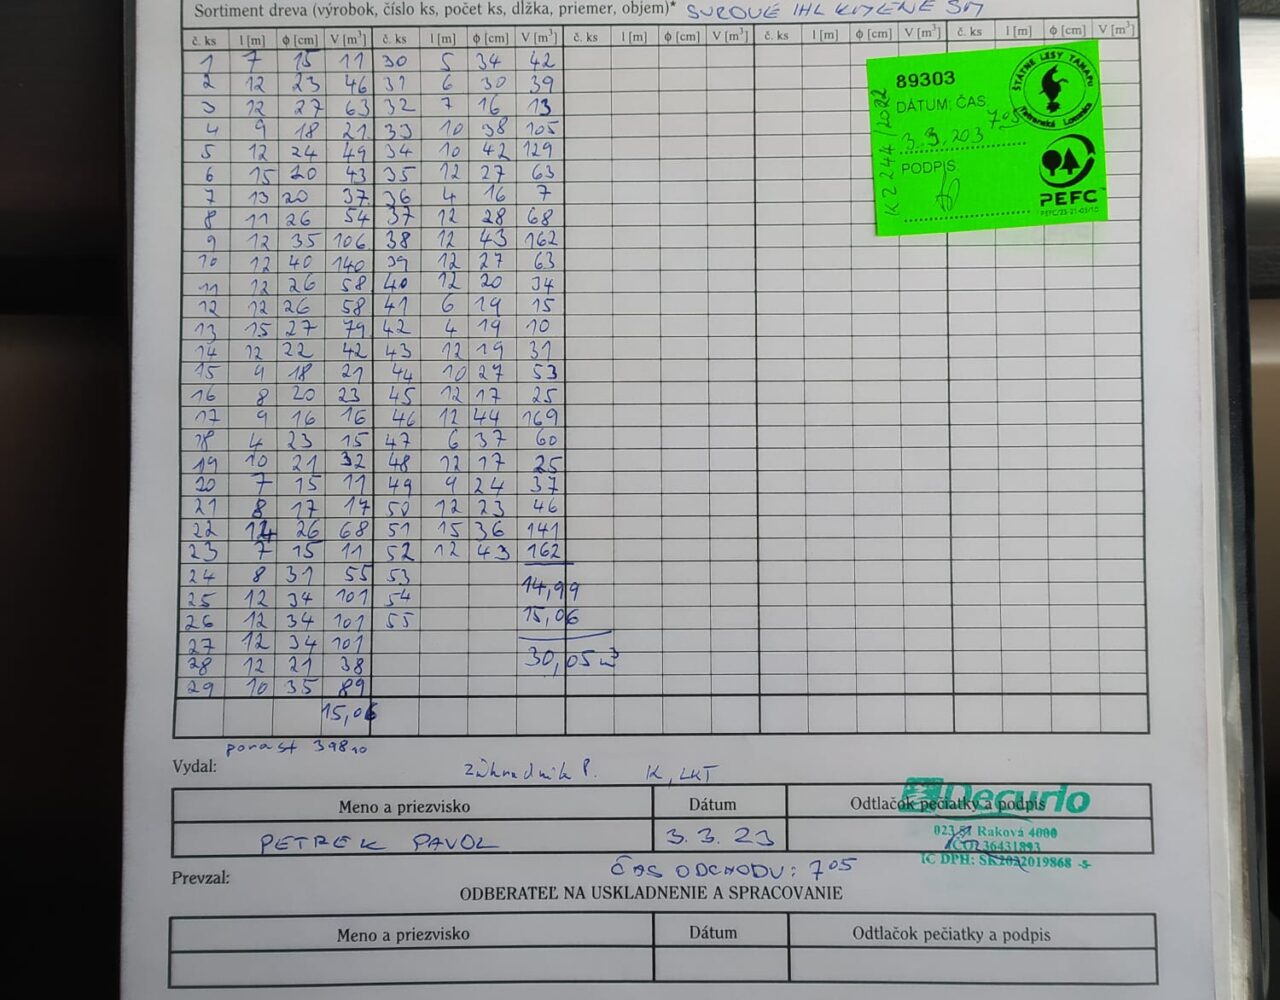 Sortiment dreva (výrobok, číslo ks, počet ks, dĺžka, priemer, objem)* SUROVÉ IHL KMENE SM
č. ks l [m] ϕ [cm] V [m³] č. ks l [m] ϕ [cm] V [m³] č. ks l [m] ϕ [cm] V [m³] č. ks l [m] ϕ [cm] V [m³] č. ks l [m] ϕ [cm] V [m³]
1 7 15 11 30 5 34 42
2 12 23 46 31 6 30 39
3 12 27 63 32 7 16 13
4 9 18 21 33 10 38 105
5 12 24 49 34 10 42 129
6 15 20 43 35 12 27 63
7 13 20 37 36 4 16 7
8 11 26 54 37 12 28 68
9 12 35 106 38 12 43 162
10 12 40 140 39 12 27 63
11 12 26 58 40 12 20 34
12 12 26 58 41 6 19 15
13 15 27 79 42 4 19 10
14 12 22 42 43 12 19 31
15 9 18 21 44 10 27 53
16 8 20 23 45 12 17 25
17 9 16 16 46 12 44 169
18 4 23 15 47 6 37 60
19 10 21 32 48 12 17 25
20 7 15 11 49 9 24 37
21 8 17 17 50 12 23 46
22 14 26 68 51 15 36 141
23 7 15 11 52 12 43 162
24 8 31 55 53
25 12 34 101 54 14,99
26 12 34 101 55 15,06
27 12 34 101
28 12 21 38 30,05 m³
29 10 35 89
15,06
89303
DÁTUM: ČAS
3.3.203 7 05
PODPIS
K2 244/2022
ŠTÁTNE LESY TANAPU
Tatranská Lomnica
PEFC
PEFC/23-21-03/10
porast 398 10
Vydal: Záhradník P. K, LKT
Meno a priezvisko Dátum Odtlačok pečiatky a podpis
PETREK PAVOL 3.3.23
Decurio
023 51 Raková 4000
IČO: 36431893
IČ DPH: SK2022019868 -5-
ČAS ODCHODU: 7 05
Prevzal:
ODBERATEĽ NA USKLADNENIE A SPRACOVANIE
Meno a priezvisko Dátum Odtlačok pečiatky a podpis